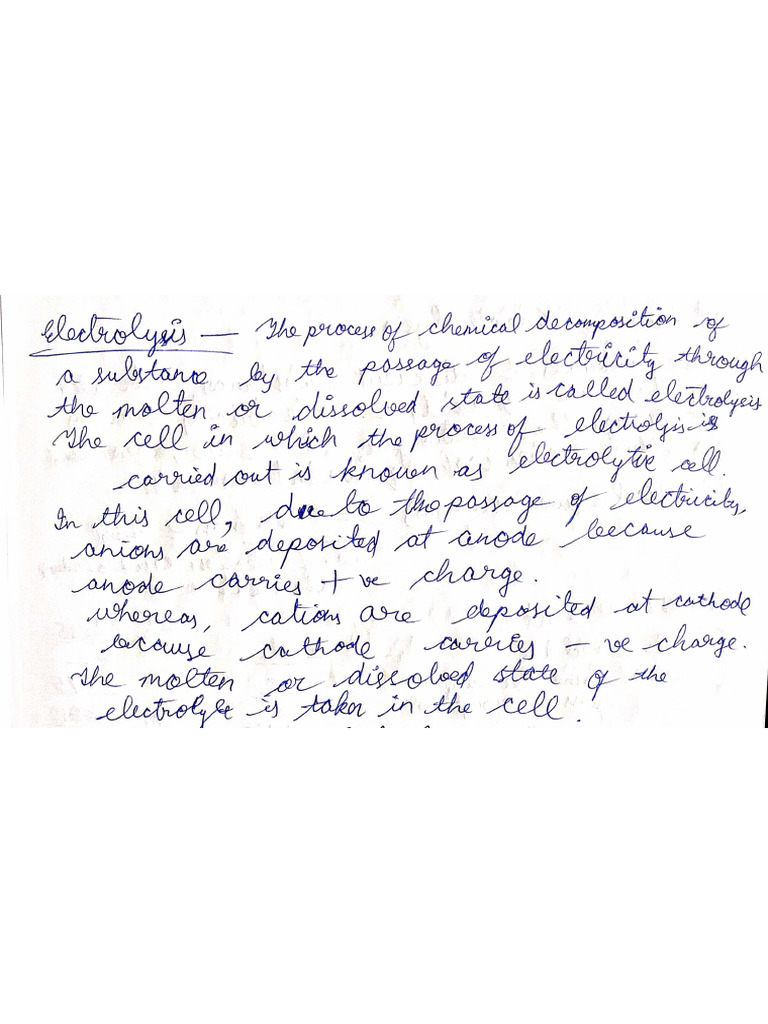 Electrolysis — The process of chemical decomposition of
a substance by the passage of electricity through
the molten or dissolved state is called electrolysis
The cell in which the process of electrolysis is
carried out is known as electrolytic cell.
In this cell, due to the passage of electricity,
anions are deposited at anode because
anode carries +ve charge.
whereas, cations are deposited at cathode
because cathode carries -ve charge.
The molten or dissolved state of the
electrolyte is taken in the cell.